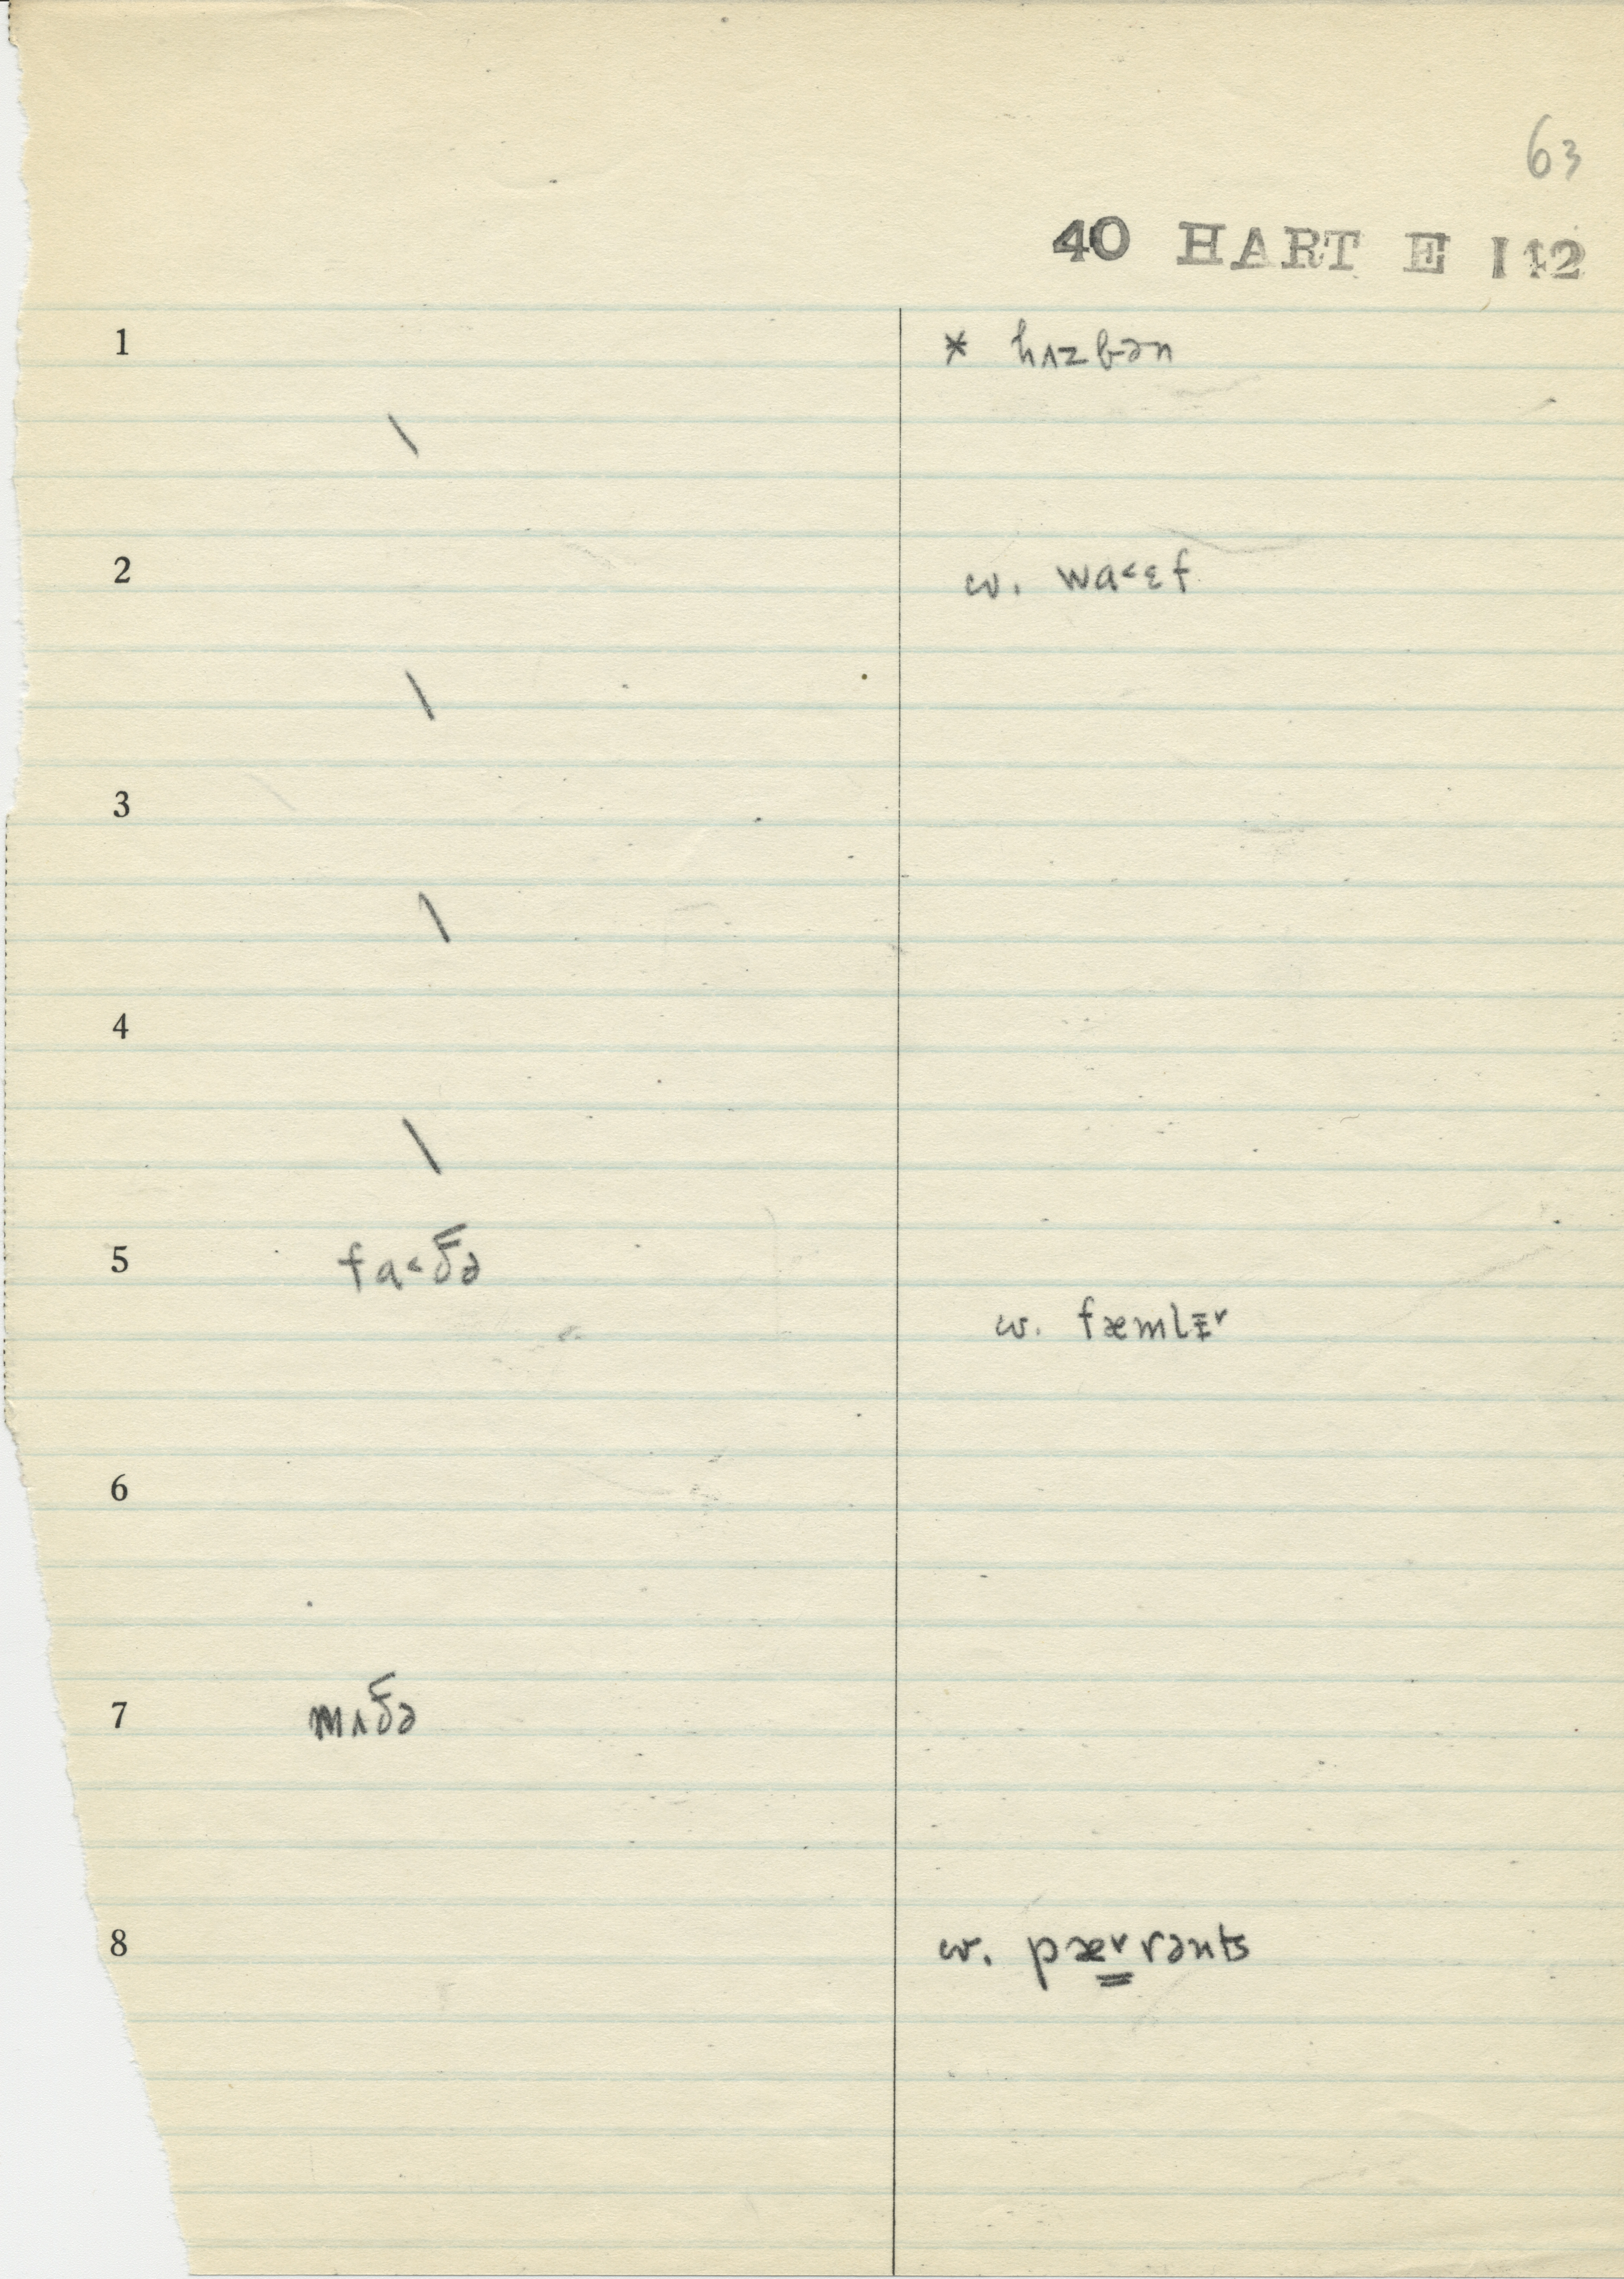 63
40 HART E 112
1 * hʌzbən
\
2 w. wa˂ɛf
\
3
\
4
\
5 fa˂ð̄ə
w. fæmlɪ˅
6
7 mʌð̄ə
8 w. pæ˅rənts